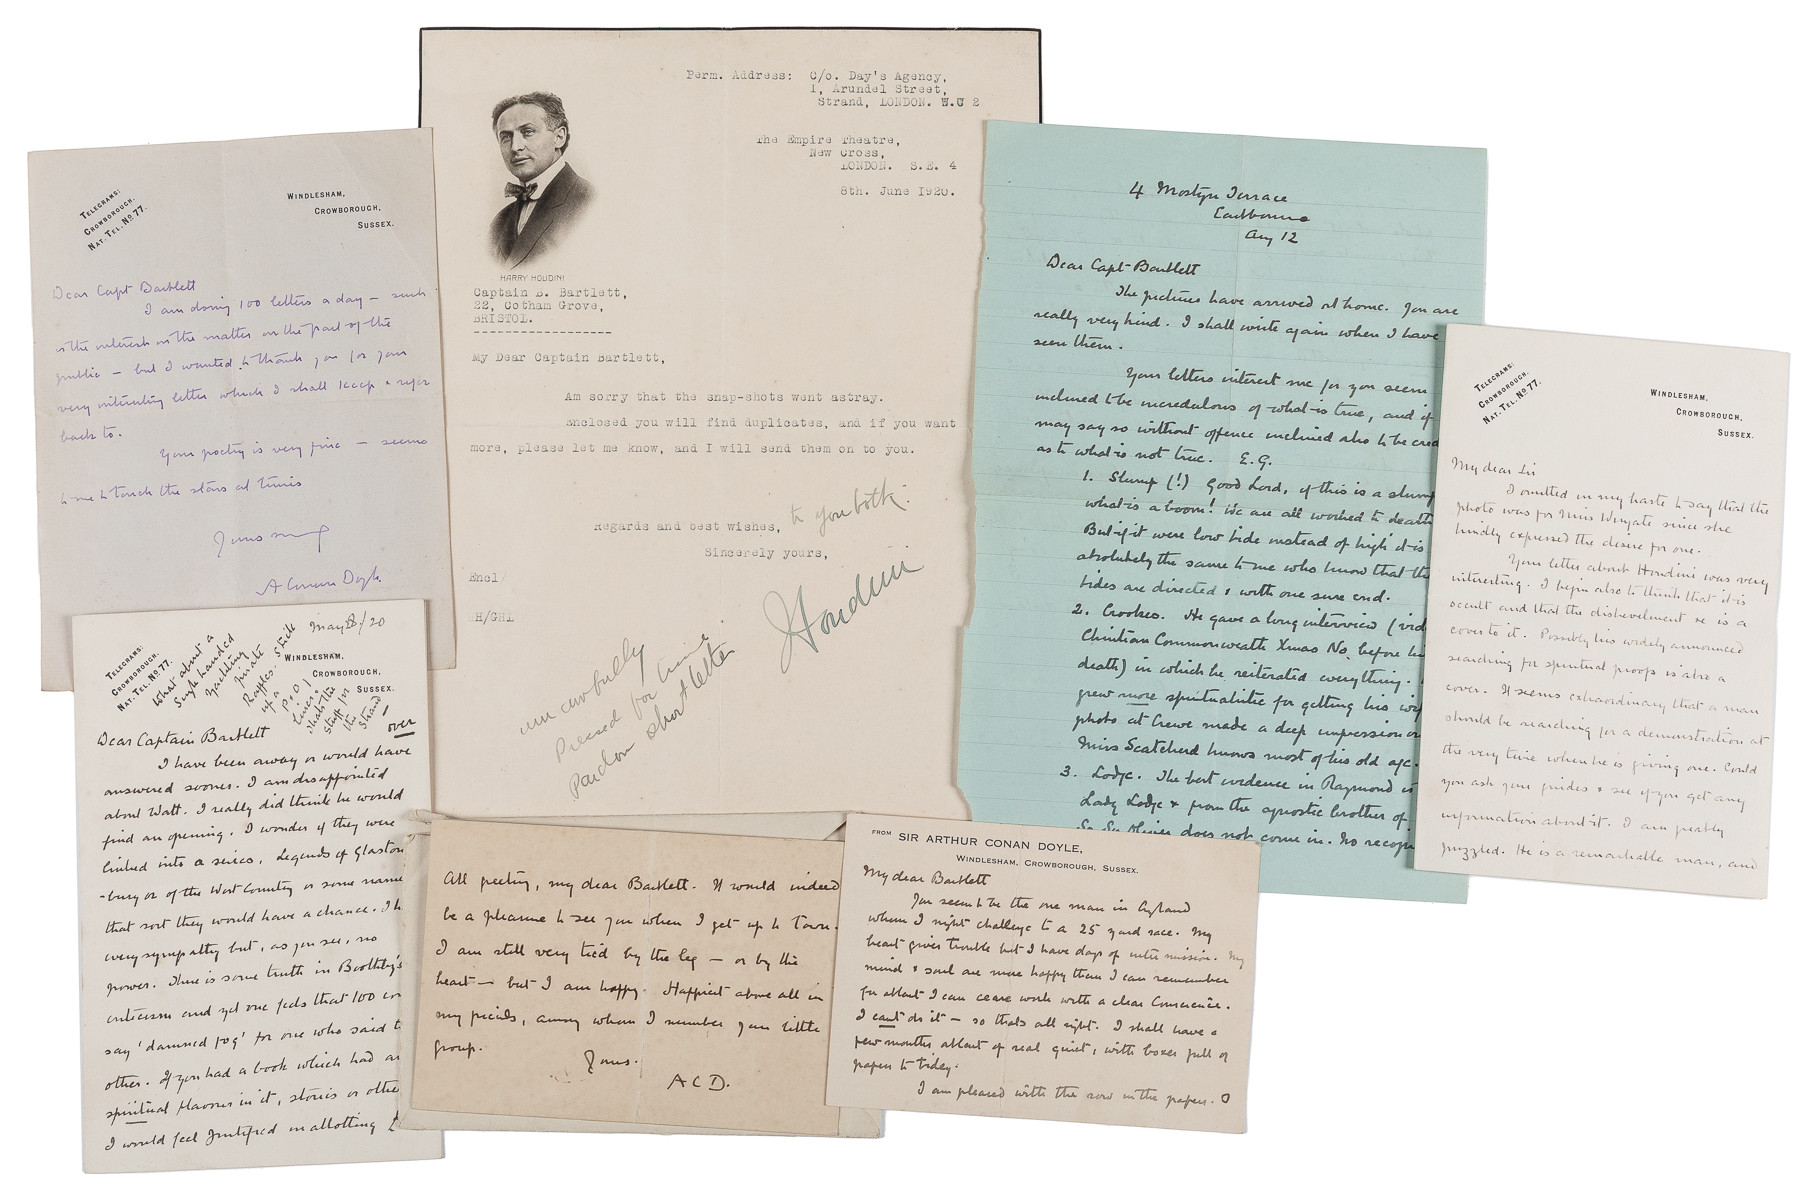 TELEGRAMS:
CROWBOROUGH.
NAT. TEL. No 77.
WINDLESHAM,
CROWBOROUGH,
SUSSEX.
Dear Capt Bartlett
I am doing 100 letters a day – such
is the interest in the matter on the part of the
public – but I wanted to thank you for your
very interesting letter which I shall keep & refer
back to.
Your poetry is very fine – seems
to me to touch the stars at times
Yours
A Conan Doyle
Perm. Address: C/o. Day's Agency,
1, Arundel Street,
Strand, LONDON. W.C 2
The Empire Theatre,
New Cross,
LONDON. S.E. 4
8th. June 1920.
HARRY HOUDINI
Captain B. Bartlett,
22, Cotham Grove,
BRISTOL.
My Dear Captain Bartlett,
Am sorry that the snap-shots went astray.
Enclosed you will find duplicates, and if you want
more, please let me know, and I will send them on to you.
Regards and best wishes, to you both.
Sincerely yours,
Encl/
HH/GHL
Houdini
am awfully
pressed for time
Pardon short letter
4 Mostyn Terrace
Eastbourne
Aug 12
Dear Capt Bartlett
The pictures have arrived at home. You are
really very kind. I shall write again when I have
seen them.
Your letters interest me for you seem
inclined to be incredulous of what is true, and if
may say so without offence inclined also to be cred
as to what is not true. E.G.
1. Slump (!) Good Lord, if this is a slump
what is a boom! We are all worked to death
But if it were low tide instead of high it is
absolutely the same to me who know that the
tides are directed & with one sure end.
2. Crookes. He gave a long interview (vide
Christian Commonwealth Xmas No. before his
death) in which he reiterated everything.
grew more spiritualistic for getting his wife
photo at Crewe made a deep impression on
Miss Scatcherd knows most of his old age.
3. Lodge. The best evidence in Raymond is
Lady Lodge & from the agnostic brother of
So Sir Oliver does not come in. No recogn
TELEGRAMS:
CROWBOROUGH.
NAT. TEL. No 77.
WINDLESHAM,
CROWBOROUGH,
SUSSEX.
My dear Sir
I omitted in my haste to say that the
photo was for Miss Wingate since she
kindly expressed the desire for one.
Your letter about Houdini was very
interesting. I begin also to think that it is
occult and that the dishevelment &c is a
cover to it. Possibly his widely announced
searching for spiritual proofs is also a
cover. It seems extraordinary that a man
should be searching for a demonstration at
the very time when he is giving one. Could
you ask your guides & see if you get any
information about it. I am greatly
puzzled. He is a remarkable man, and
TELEGRAMS:
CROWBOROUGH.
NAT. TEL. No 77.
What about a
Single handed
Yachting
pirate
Raffles. Stick
up a
P & O!
liner.
that's the
stuff for
the
Strand!
May 28/20
WINDLESHAM,
CROWBOROUGH,
SUSSEX.
over
Dear Captain Bartlett
I have been away or would have
answered sooner. I am disappointed
about Watt. I really did think he would
find an opening. I wonder if they were
linked into a series, Legends of Glaston
-bury or of the West Country or some name
that sort they would have a chance. I h
every sympathy but, as you see, no
power. There is some truth in Boothby's
criticism and yet one feels that 100 co
say 'damned fog' for one who said t
other. If you had a book which had a
spiritual flavour in it, stories or othe
I would feel justified in allotting £
All greeting, my dear Bartlett. It would indeed
be a pleasure to see you when I get up to town.
I am still very tied by the leg – or by the
heart – but I am happy. Happiest above all in
my friends, among whom I number your little
group.
Yours.
A C D.
FROM SIR ARTHUR CONAN DOYLE,
WINDLESHAM, CROWBOROUGH, SUSSEX.
My dear Bartlett
You seem to be the one man in England
whom I might challenge to a 25 yard race. My
heart gives trouble but I have days of intermission. My
mind & soul are more happy than I can remember
for at last I can cease work with a clear Conscience.
I can't do it – so that's all right. I shall have a
few months at last of real quiet, with boxes full of
papers to tidy.
I am pleased with the row in the papers. O